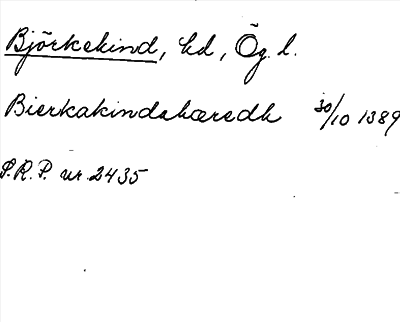 Björkekind, hd, Ög. l.
Bierkakindshæredh 30/10 1389
S.R.P. nr 2435